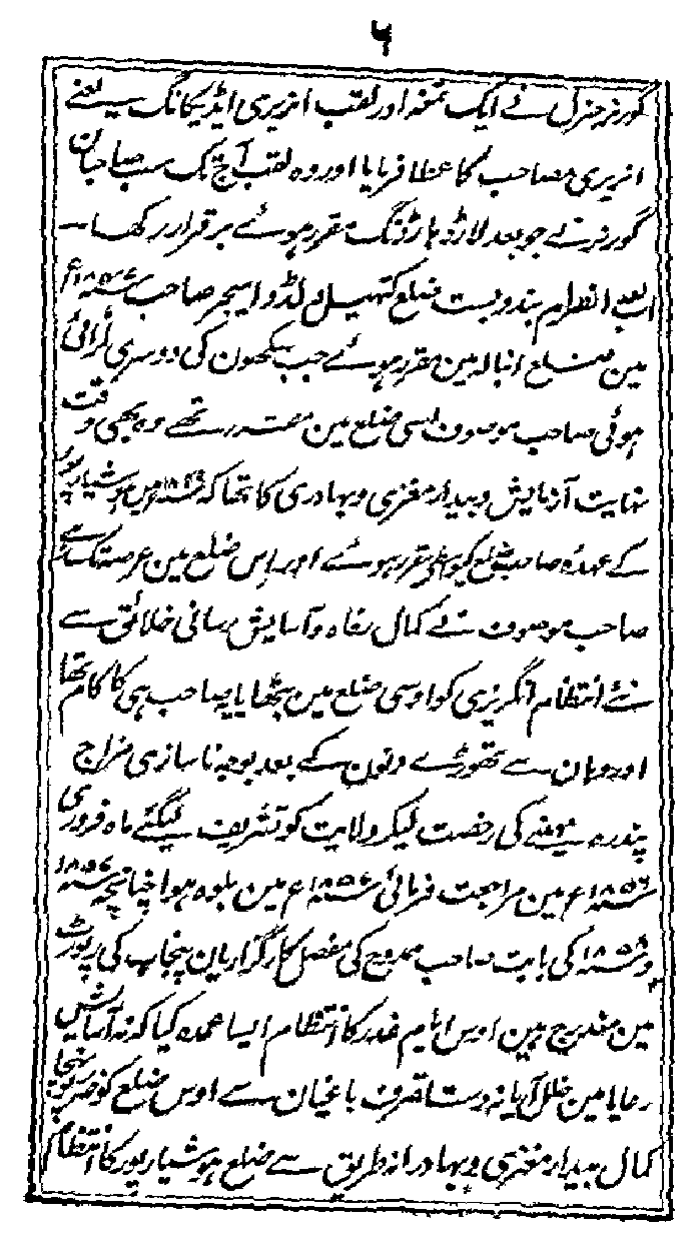 ۶
گورنر جنرل نے ایک تمغہ اور لقب انریری ایڈیکانگ سے یعنے
انریری مصاحب کا عطا فرمایا اور وہ لقب آج تک سب صاحبان
گورنر نے جو بعد لارڈ ہارڈنگ مقرر ہوئے برقرار رکھا۔
بعد انصرام بندوبست ضلع کتھیل لڈو ا میجر صاحب
مین ضلع انبالہ مین مقرر ہوئے جب سکھون کی دوسری لڑائی
ہوئی صاحب موصوف اسی ضلع مین تھے وہ بھی وقت
نہایت آزمایش و بیدار مغزی و بہادری کا تھا کہ مین ہوشیارپور
کے عہدہ صاحب ضلع مقرر ہوئے اور اس ضلع مین عرصہ تک رہے
صاحب موصوف نے کمال رفاہ و آسایش رسانی خلائق سے
نئے انتظام انگریزی کو اوسی ضلع مین بٹھایا یہ صاحب ہی کا کام تھا
اور وہان سے تھوڑے دنون کے بعد بوجہ ناسازی مزاج
پندرہ مہینے کی رخصت لیکر ولایت کو تشریف لیگئے ماہ فروری
۱۸۵۶ع مین مراجعت فرمائی ۱۸۵۷ع مین بلوہ ہوا چنانچہ ۱۸۵۷
و ۱۸۵۸ کی بابت صاحب ممدوح کی مفصل کارگزاریان پنجاب کی رپورٹ
مین مندرج ہین اوس ایام غدر کا انتظام ایسا عمدہ کیا کہ نہ آسایش
رعایا مین خلل آیا نہ دست تصرف باغیان سے اوس ضلع کو ضرر پہنچا
کمال بیدار مغزی و بہادرانہ طریق سے ضلع ہوشیارپور کا انتظام